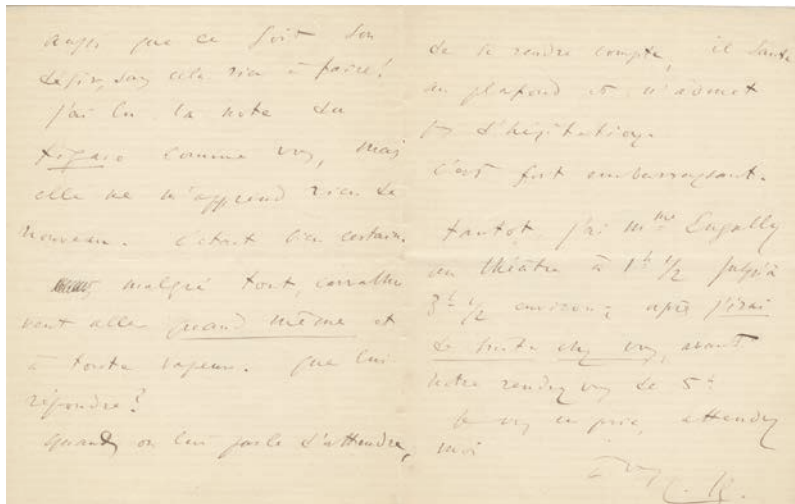 aussi que ce soit son
désir, sans cela rien à faire!
J'ai lu la note du
Figaro comme vous, mais
elle ne m'apprend rien de
nouveau. C'était bien certain.
malgré tout, Carvalho
veut aller quand même et
à toute vapeur. Que lui
répondre?
Quand on lui parle d'attendre,
de se rendre compte, il saute
au plafond et n'admet
pas d'hésitation.
C'est fort embarrassant.
Tantôt, j'ai Mme Engally
au théâtre à 1h 1/2 jusqu'à
3h 1/2 environ; après j'irai
de suite chez vous, avant
notre rendez vous de 5h
Je vous en prie, attendez
moi